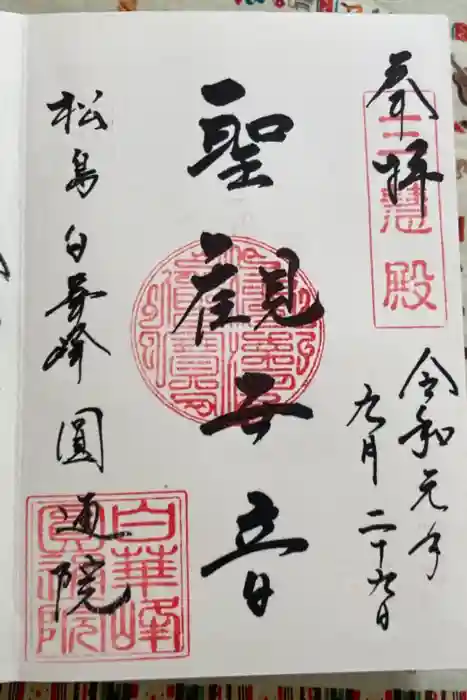 奉拝
三慧殿
令和元年
九月二十九日
聖観世音
松島白華峰圓通院
白華峰
圓通院